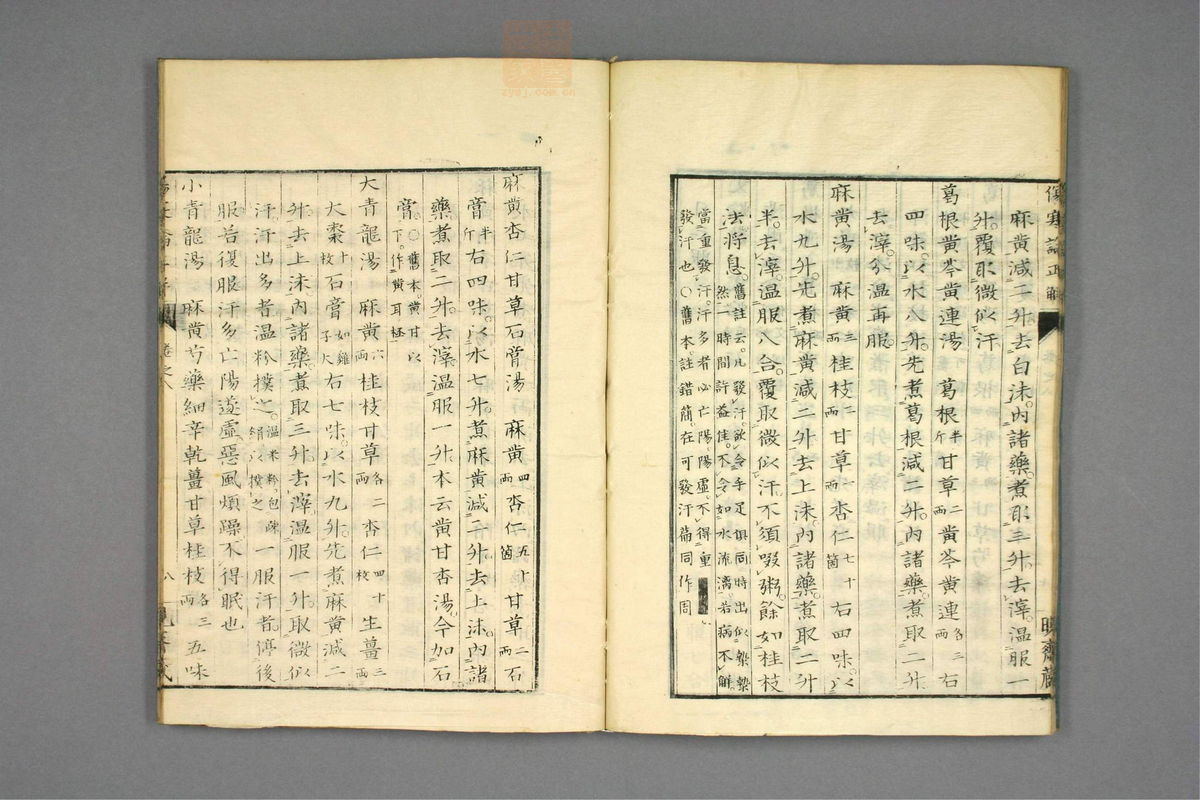 傷寒論正解
麻黃減二升去白沫內諸藥煮取三升去滓溫服一
升覆取微似汗
葛根黃芩黃連湯 葛根半斤甘草二兩黃芩黃連各三兩右
四味以水八升先煮葛根減二升內諸藥煮取二升
去滓分溫再服
麻黃湯 麻黃三兩桂枝二兩甘草一兩杏仁七十箇右四味以
水九升先煮麻黃減二升去上沫內諸藥煮取二升
半去滓溫服八合覆取微似汗不須啜粥餘如桂枝
法將息舊註云凡發汗欲令手足俱同時出似漐漐
然一時間許益佳不令如水流漓若病不解
當重發汗汗多者必亡陽陽虛不得重
發汗也○舊本註錯簡在可發汗篇同作周
麻黃杏仁甘草石膏湯 麻黃四兩杏仁五十箇甘草二兩石
膏半斤右四味以水七升煮麻黃減二升去上沫內諸
藥煮取二升去滓溫服一升本云黃甘杏湯今加石
膏○舊本黃甘以下作黃耳柸
大青龍湯 麻黃六兩桂枝甘草各二兩杏仁四十枚生薑三兩
大棗十枚石膏如雞子大右七味以水九升先煮麻黃減二
升去上沫內諸藥煮取三升去滓溫服一升取微似
汗汗出多者溫粉撲之溫米粉包疎絹以撲之一服汗者停後
服若復服汗多亡陽遂虛惡風煩躁不得眠也
小青龍湯 麻黃芍藥細辛乾薑甘草桂枝各三兩五味
卷之八
八